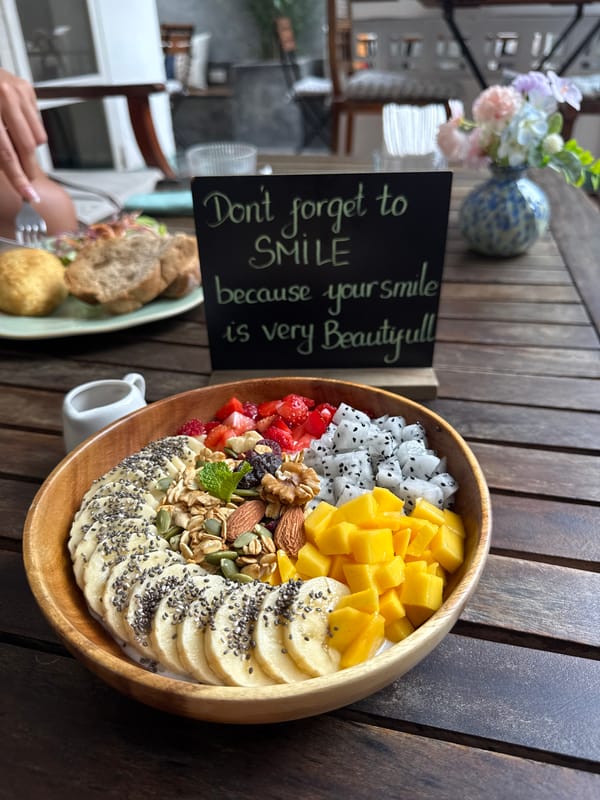 Don't forget to
SMiLE
because your smile
is very Beautifull